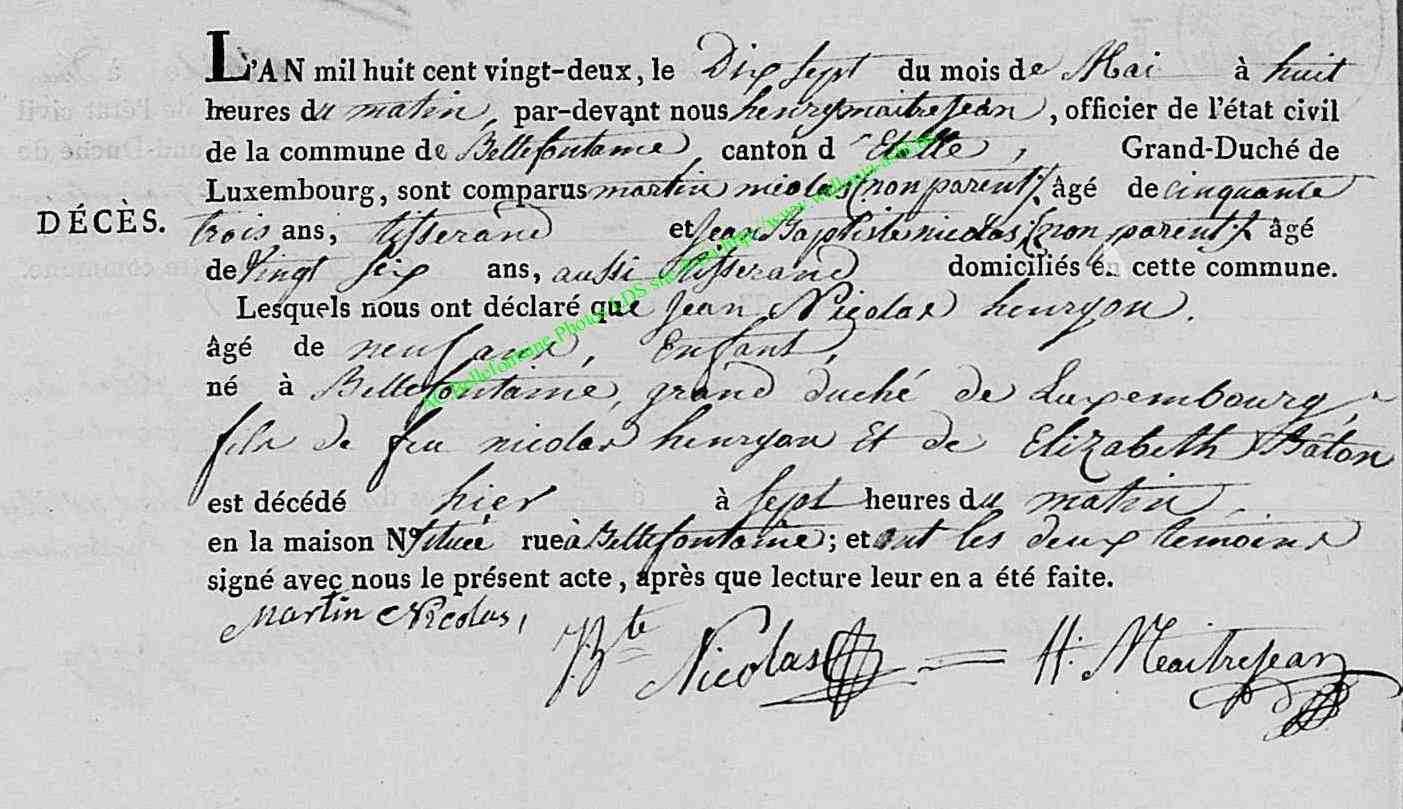 L'AN mil huit cent vingt-deux, le Dix Sept du mois de Mai à huit
heures du matin, par-devant nous henry maitrejean, officier de l'état civil
de la commune de Bellefontaine, canton d'Etalle, Grand-Duché de
Luxembourg, sont comparus martin nicolas (non parent), âgé de cinquante
DÉCÈS.
trois ans, tisserand et Jean Baptiste nicolas, (non parent), âgé
de Vingt Six ans, aussi tisserand domiciliés en cette commune.
Lesquels nous ont déclaré que Jean Nicolas henryon,
âgé de neuf ans, Enfant,
né à Bellefontaine, grand duché de Luxembourg,
fils de feu nicolas henryon Et de Elizabeth Bâton
est décédé hier à Sept heures du matin,
en la maison N° située rue à Bellefontaine; et ont les deux temoins
signé avec nous le présent acte, après que lecture leur en a été faite.
Martin Nicolas,
JBte Nicolas H. Maitrejean
AC Bellefontaine Photos LDS